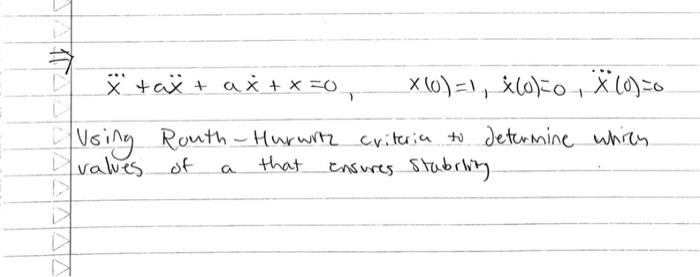 ⇒
x⃛ + aẍ + aẋ + x = 0, x(0)=1, ẋ(0)=0, ẍ(0)=0
Using Routh-Hurwitz criteria to determine which
values of a that ensures stability